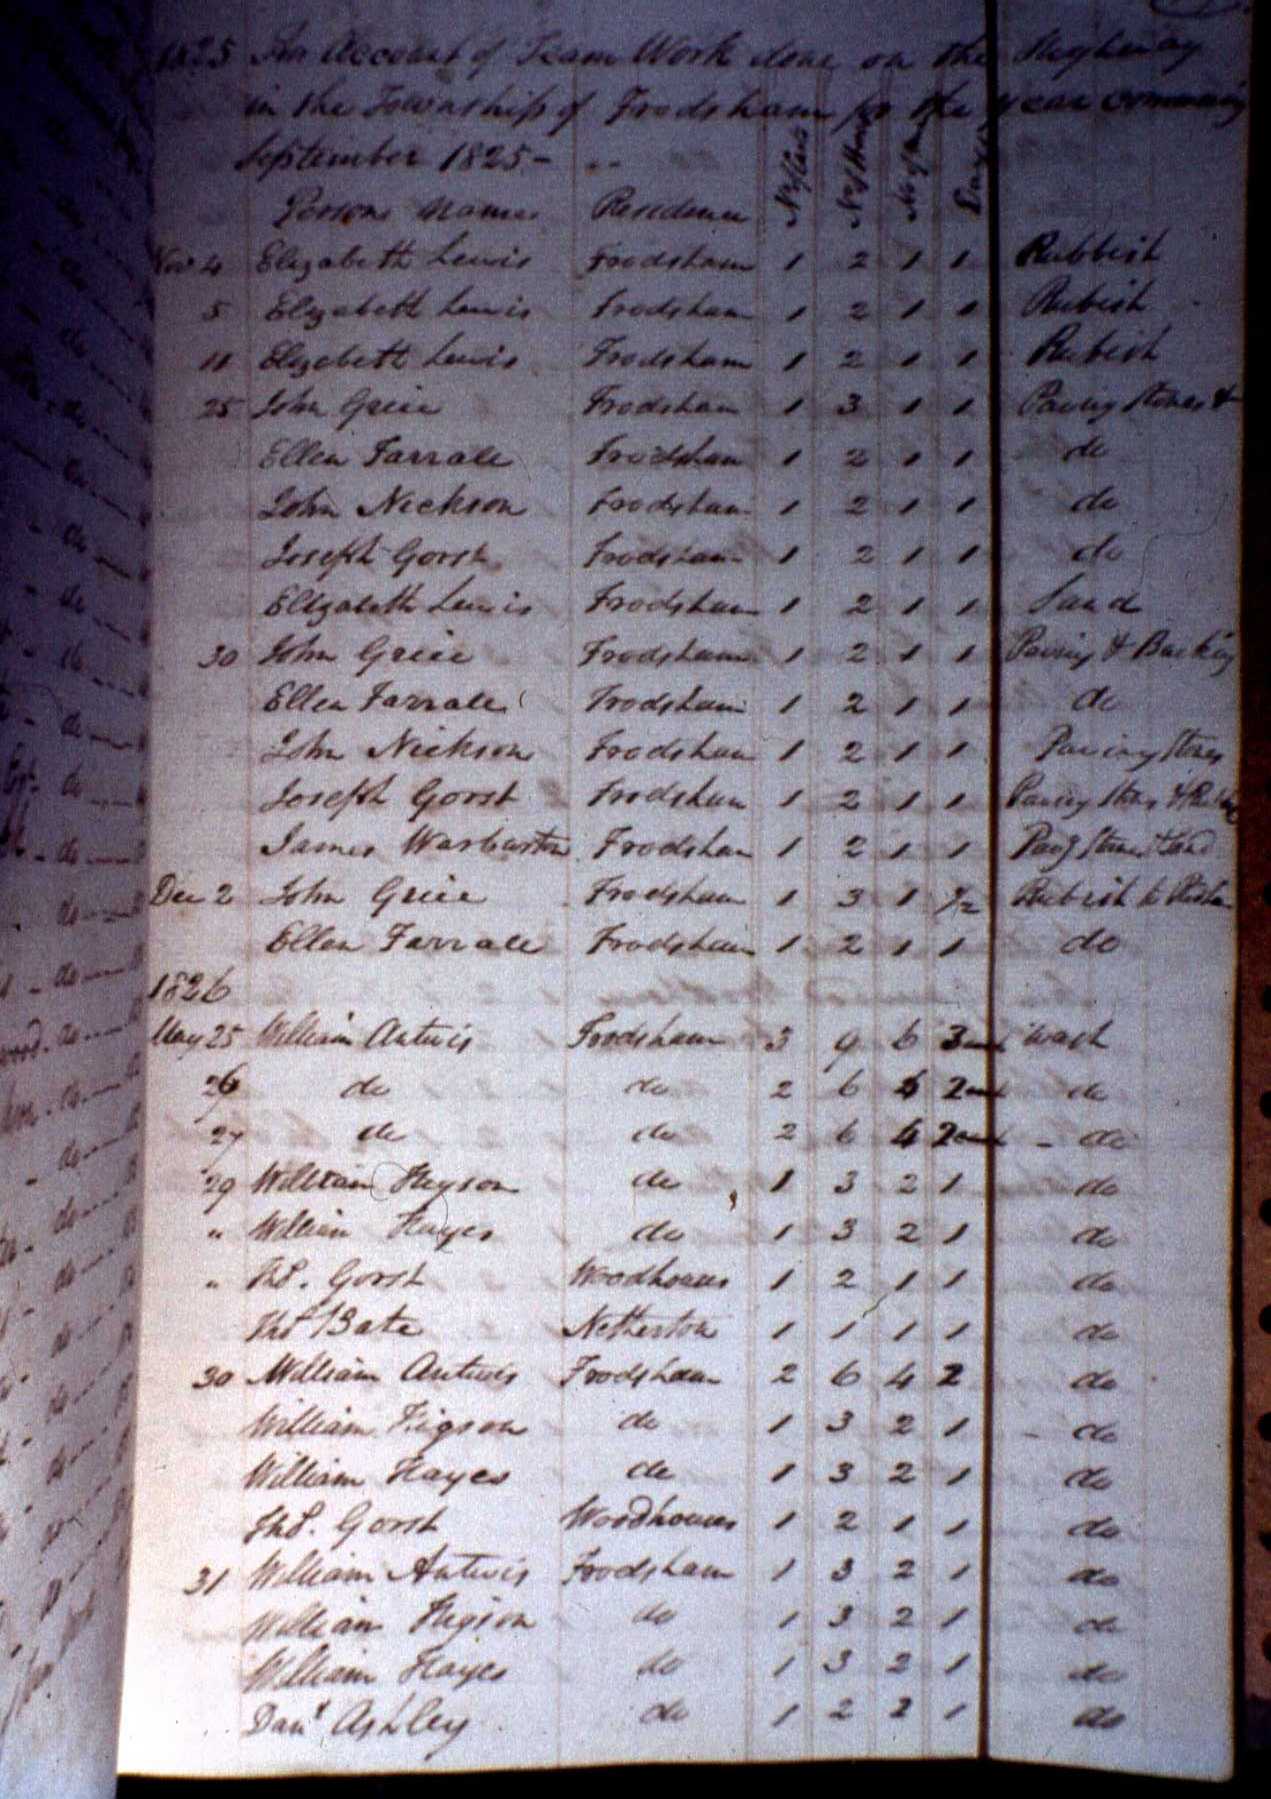 1825 An Account of Team Work done on the Highway
in the Township of Frodsham for the year comencing
September 1825 -
Persons Names Residence No of Carts No of Horses No of Men Days
Novr 4 Elizabeth Lewis Frodsham 1 2 1 1 Rubbish
5 Elizabeth Lewis Frodsham 1 2 1 1 Rubish
11 Elizebeth Lewis Frodsham 1 2 1 1 Rubish
25 John Grice Frodsham 1 3 1 1 Paving Stones &
Ellen Farrall Frodsham 1 2 1 1 do
John Nickson Frodsham 1 2 1 1 do
Joseph Gorst Frodsham 1 2 1 1 do
Elizabeth Lewis Frodsham 1 2 1 1 Sand
30 John Grice Frodsham 1 2 1 1 Paving & Backing
Ellen Farrall Frodsham 1 2 1 1 do
John Nickson Frodsham 1 2 1 1 Paving Stones
Joseph Gorst Frodsham 1 2 1 1 Paving Stones &
James Warburton Frodsham 1 2 1 1 Pavg Stones & Sand
Dec 2 John Grice Frodsham 1 3 1 1/2 Rubish to
Ellen Farrall Frodsham 1 2 1 1 do
1826
May 25 William Antwis Frodsham 3 9 6 3 each
26 do do 2 6 4 2 each do
27 do do 2 6 4 2 each - do
29 William Higson do 1 3 2 1 do
" William Hayes do 1 3 2 1 do
" Thos. Gorst Woodhouses 1 2 1 1 do
Thos Bate Netherton 1 1 1 1 do
30 William Antwis Frodsham 2 6 4 2 do
William Higson do 1 3 2 1 - do
William Hayes do 1 3 2 1 do
Thos. Gorst Woodhouses 1 2 1 1 do
31 William Antwis Frodsham 1 3 2 1 do
William Higson do 1 3 2 1 do
William Hayes do 1 3 2 1 do
Danl Ashley do 1 2 2 1 do